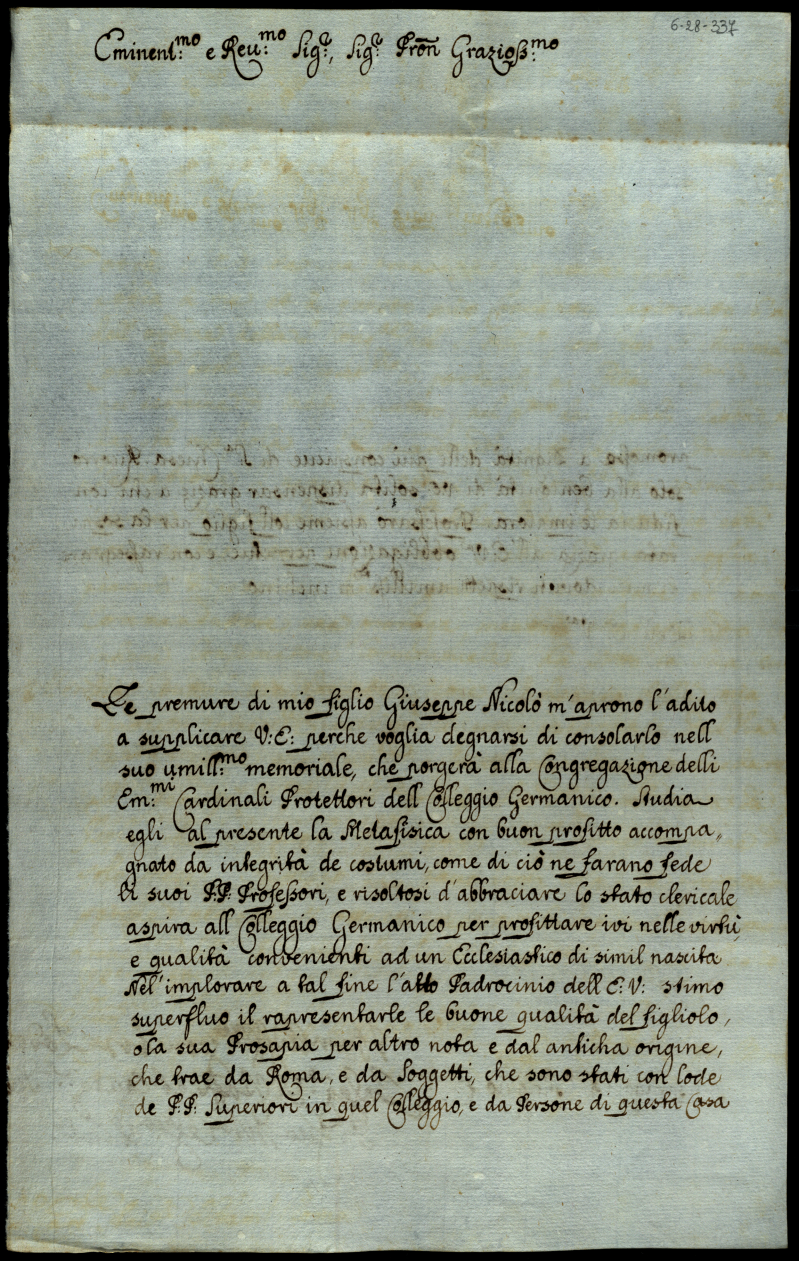 6-28-337
Eminent:mo e Reu:mo Sig:r, Sig:r Pron̄ Grazioss:mo
Le premure di mio figlio Giuseppe Nicolò m'aprono l'adito
a supplicare V: E: perche voglia degnarsi di consolarlo nell
suo umill:mo memoriale, che porgerà alla Congregazione delli
Em:mi Cardinali Protettori dell Colleggio Germanico. Studia
egli al presente la Metafisica con buon profitto accompa„
gnato da integrità de costumi, come di ciò ne farano fede
li suoi P.P. Professori, e risoltosi d'abbraciare lo stato clericale
aspira all Colleggio Germanico per profittare ivi nelle virtù,
e qualità convenienti ad un Ecclesiastico di simil nascita
Nel'implorare a tal fine l'atto Padrocinio dell E: V: stimo
superfluo il rapresentarle le buone qualità del figliolo,
o la sua Prosapia per altro nota e dal anticha origine,
che trae da Roma, e da Soggetti, che sono stati con lode
de P.P. Superiori in quel Colleggio, e da Persone di questa Casa